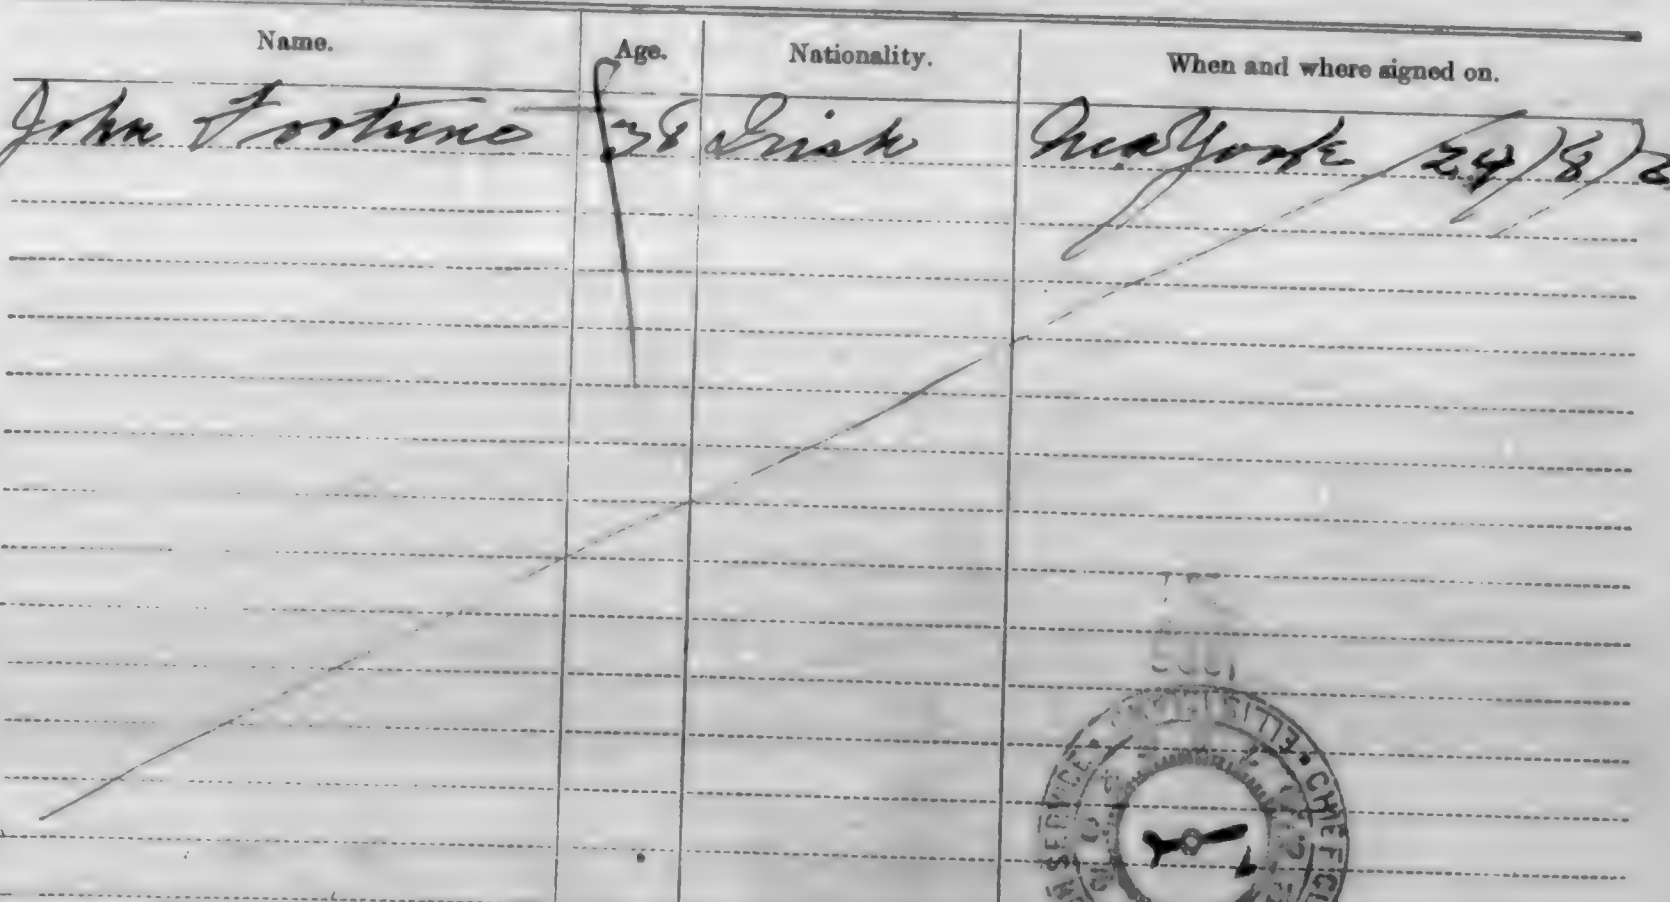 Name. Age. Nationality. When and where signed on.
John Fortune 38 Irish New York 24/8/2
CHIEF